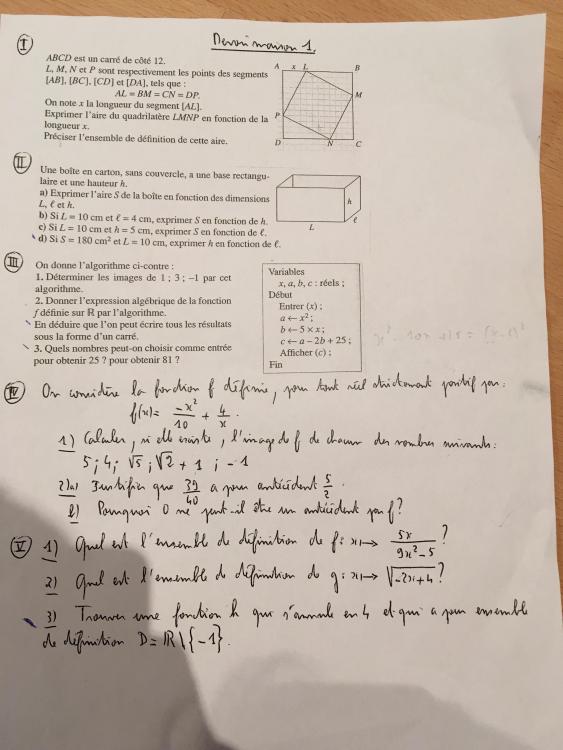 Devoir maison 1.
I
ABCD est un carré de côté 12.
L, M, N et P sont respectivement les points des segments
[AB], [BC], [CD] et [DA], tels que :
AL = BM = CN = DP.
On note x la longueur du segment [AL].
Exprimer l'aire du quadrilatère LMNP en fonction de la
longueur x.
Préciser l'ensemble de définition de cette aire.
A x L B
M
P
D N C
II
Une boîte en carton, sans couvercle, a une base rectangu-
laire et une hauteur h.
a) Exprimer l'aire S de la boîte en fonction des dimensions
L, ℓ et h.
b) Si L = 10 cm et ℓ = 4 cm, exprimer S en fonction de h.
c) Si L = 10 cm et h = 5 cm, exprimer S en fonction de ℓ.
d) Si S = 180 cm² et L = 10 cm, exprimer h en fonction de ℓ.
h
ℓ
L
III
On donne l'algorithme ci-contre :
1. Déterminer les images de 1 ; 3 ; −1 par cet
algorithme.
2. Donner l'expression algébrique de la fonction
f définie sur ℝ par l'algorithme.
En déduire que l'on peut écrire tous les résultats
sous la forme d'un carré.
3. Quels nombres peut-on choisir comme entrée
pour obtenir 25 ? pour obtenir 81 ?
Variables
x, a, b, c : réels ;
Début
Entrer (x) ;
a ← x² ;
b ← 5 × x ;
c ← a − 2b + 25 ;
Afficher (c) ;
Fin
IV On considère la fonction f définie, pour tout réel strictement positif par :
f(x) = -x²/10 + 4/x .
1) Calculer, si elle existe, l'image de f de chacun des nombres suivants :
5 ; 4 ; √5 ; √2 + 1 ; -1
2) a) Justifier que 39/40 a pour antécédent 5/2 .
b) Pourquoi 0 ne peut-il être un antécédent par f ?
V 1) Quel est l'ensemble de définition de f : x ↦ 5x/(9x²-5) ?
2) Quel est l'ensemble de définition de g : x ↦ √(-2x+4) ?
3) Trouver une fonction h qui s'annule en 4 et qui a pour ensemble
de définition D = ℝ \ {-1}.